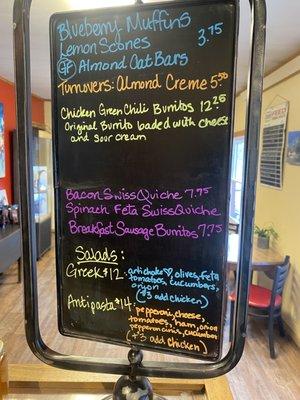 Blueberry Muffins
Lemon Scones 3.75
GF Almond Oat Bars
Turnovers: Almond Creme 5.50
Chicken Green Chili Burritos 12.25
Original Burrito loaded with cheese
and sour cream
Bacon Swiss Quiche 7.75
Spinach Feta Swiss Quiche
Breakfast Sausage Burritos 7.75
Salads:
Greek $12 artichoke♡, olives, feta
tomatoes, cucumbers,
onion
(+$3 add chicken)
Antipasta $14: pepperoni, cheese,
tomatoes, ham, onion
pepperoncinis, cucumber
(+$3 add chicken)